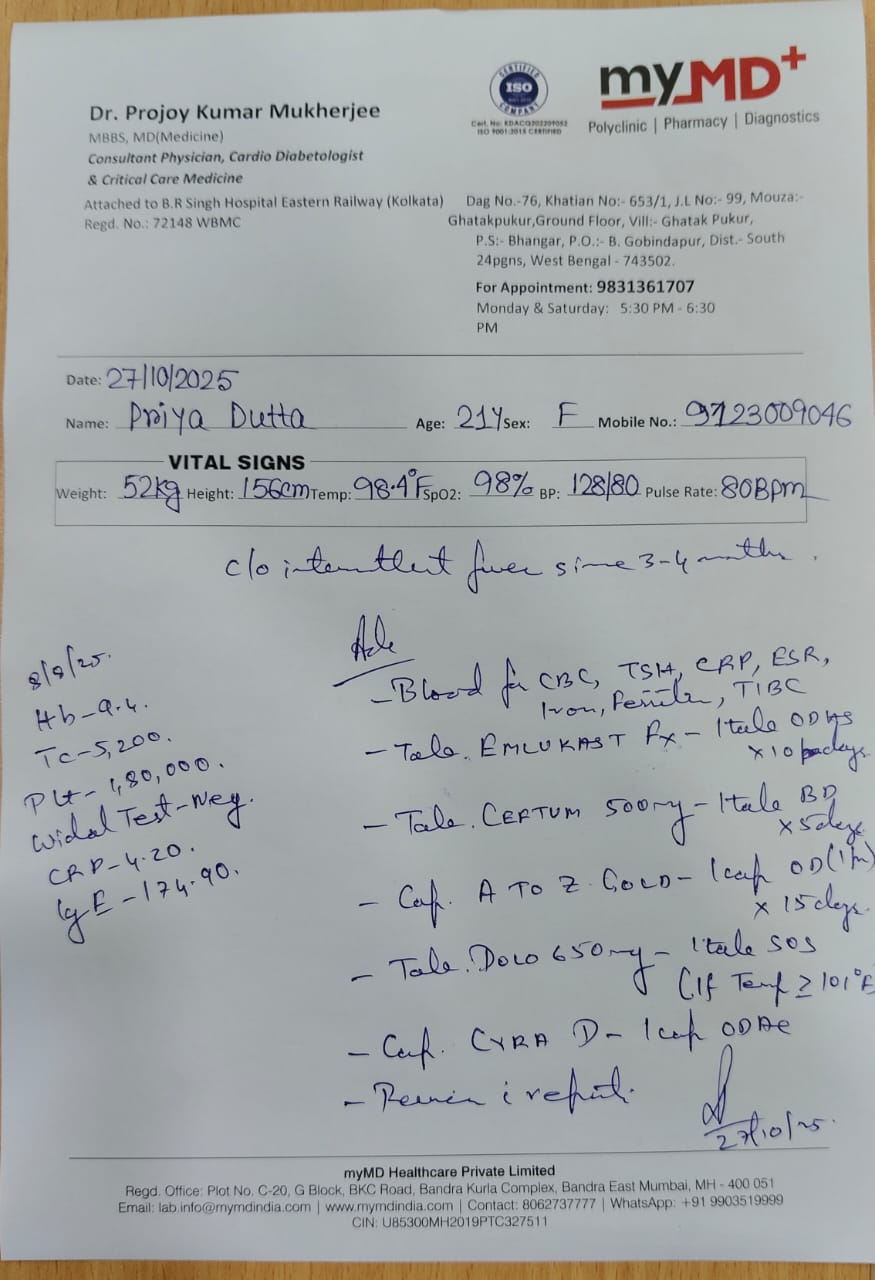 Dr. Projoy Kumar Mukherjee
MBBS, MD(Medicine)
Consultant Physician, Cardio Diabetologist
& Critical Care Medicine
Attached to B.R Singh Hospital Eastern Railway (Kolkata)
Regd. No.: 72148 WBMC
CERTIFIED
ISO
COMPANY
ISO 9001:2015 CERTIFIED
myMD+
Polyclinic | Pharmacy | Diagnostics
Dag No.-76, Khatian No:- 653/1, J.L No:- 99, Mouza:-
Ghatakpukur,Ground Floor, Vill:- Ghatak Pukur,
P.S:- Bhangar, P.O.:- B. Gobindapur, Dist.- South
24pgns, West Bengal - 743502.
For Appointment: 9831361707
Monday & Saturday: 5:30 PM - 6:30
PM
Date: 27/10/2025
Name: Priya Dutta Age: 21Y Sex: F Mobile No.: 9123009046
VITAL SIGNS
Weight: 52kg Height: 156cm Temp: 98.4°F SpO2: 98% BP: 128/80 Pulse Rate: 80Bpm
c/o intermittent fever since 3-4 months.
8/9/25.
Hb-9.4.
Tc-5,200.
Plt-1,80,000.
Widal Test-Neg.
CRP-4.20.
IgE-174.90.
Adv
- Blood for CBC, TSH, CRP, ESR,
Iron, Ferritin, TIBC
- Tab. EMLUKAST Fx - 1tab OD HS
x 10 days
- Tab. CEFTUM 500mg - 1tab BD
x 5days
- Cap. A TO Z GOLD - 1cap OD
x 15 days.
- Tab. DOLO 650mg - 1tab SOS
(If Temp ≥ 101°F
- Cap. CYRA D - 1cap OD AC
- Review c report.
27/10/25.
myMD Healthcare Private Limited
Regd. Office: Plot No. C-20, G Block, BKC Road, Bandra Kurla Complex, Bandra East Mumbai, MH - 400 051
Email: lab.info@mymdindia.com | www.mymdindia.com | Contact: 8062737777 | WhatsApp: +91 9903519999
CIN: U85300MH2019PTC327511